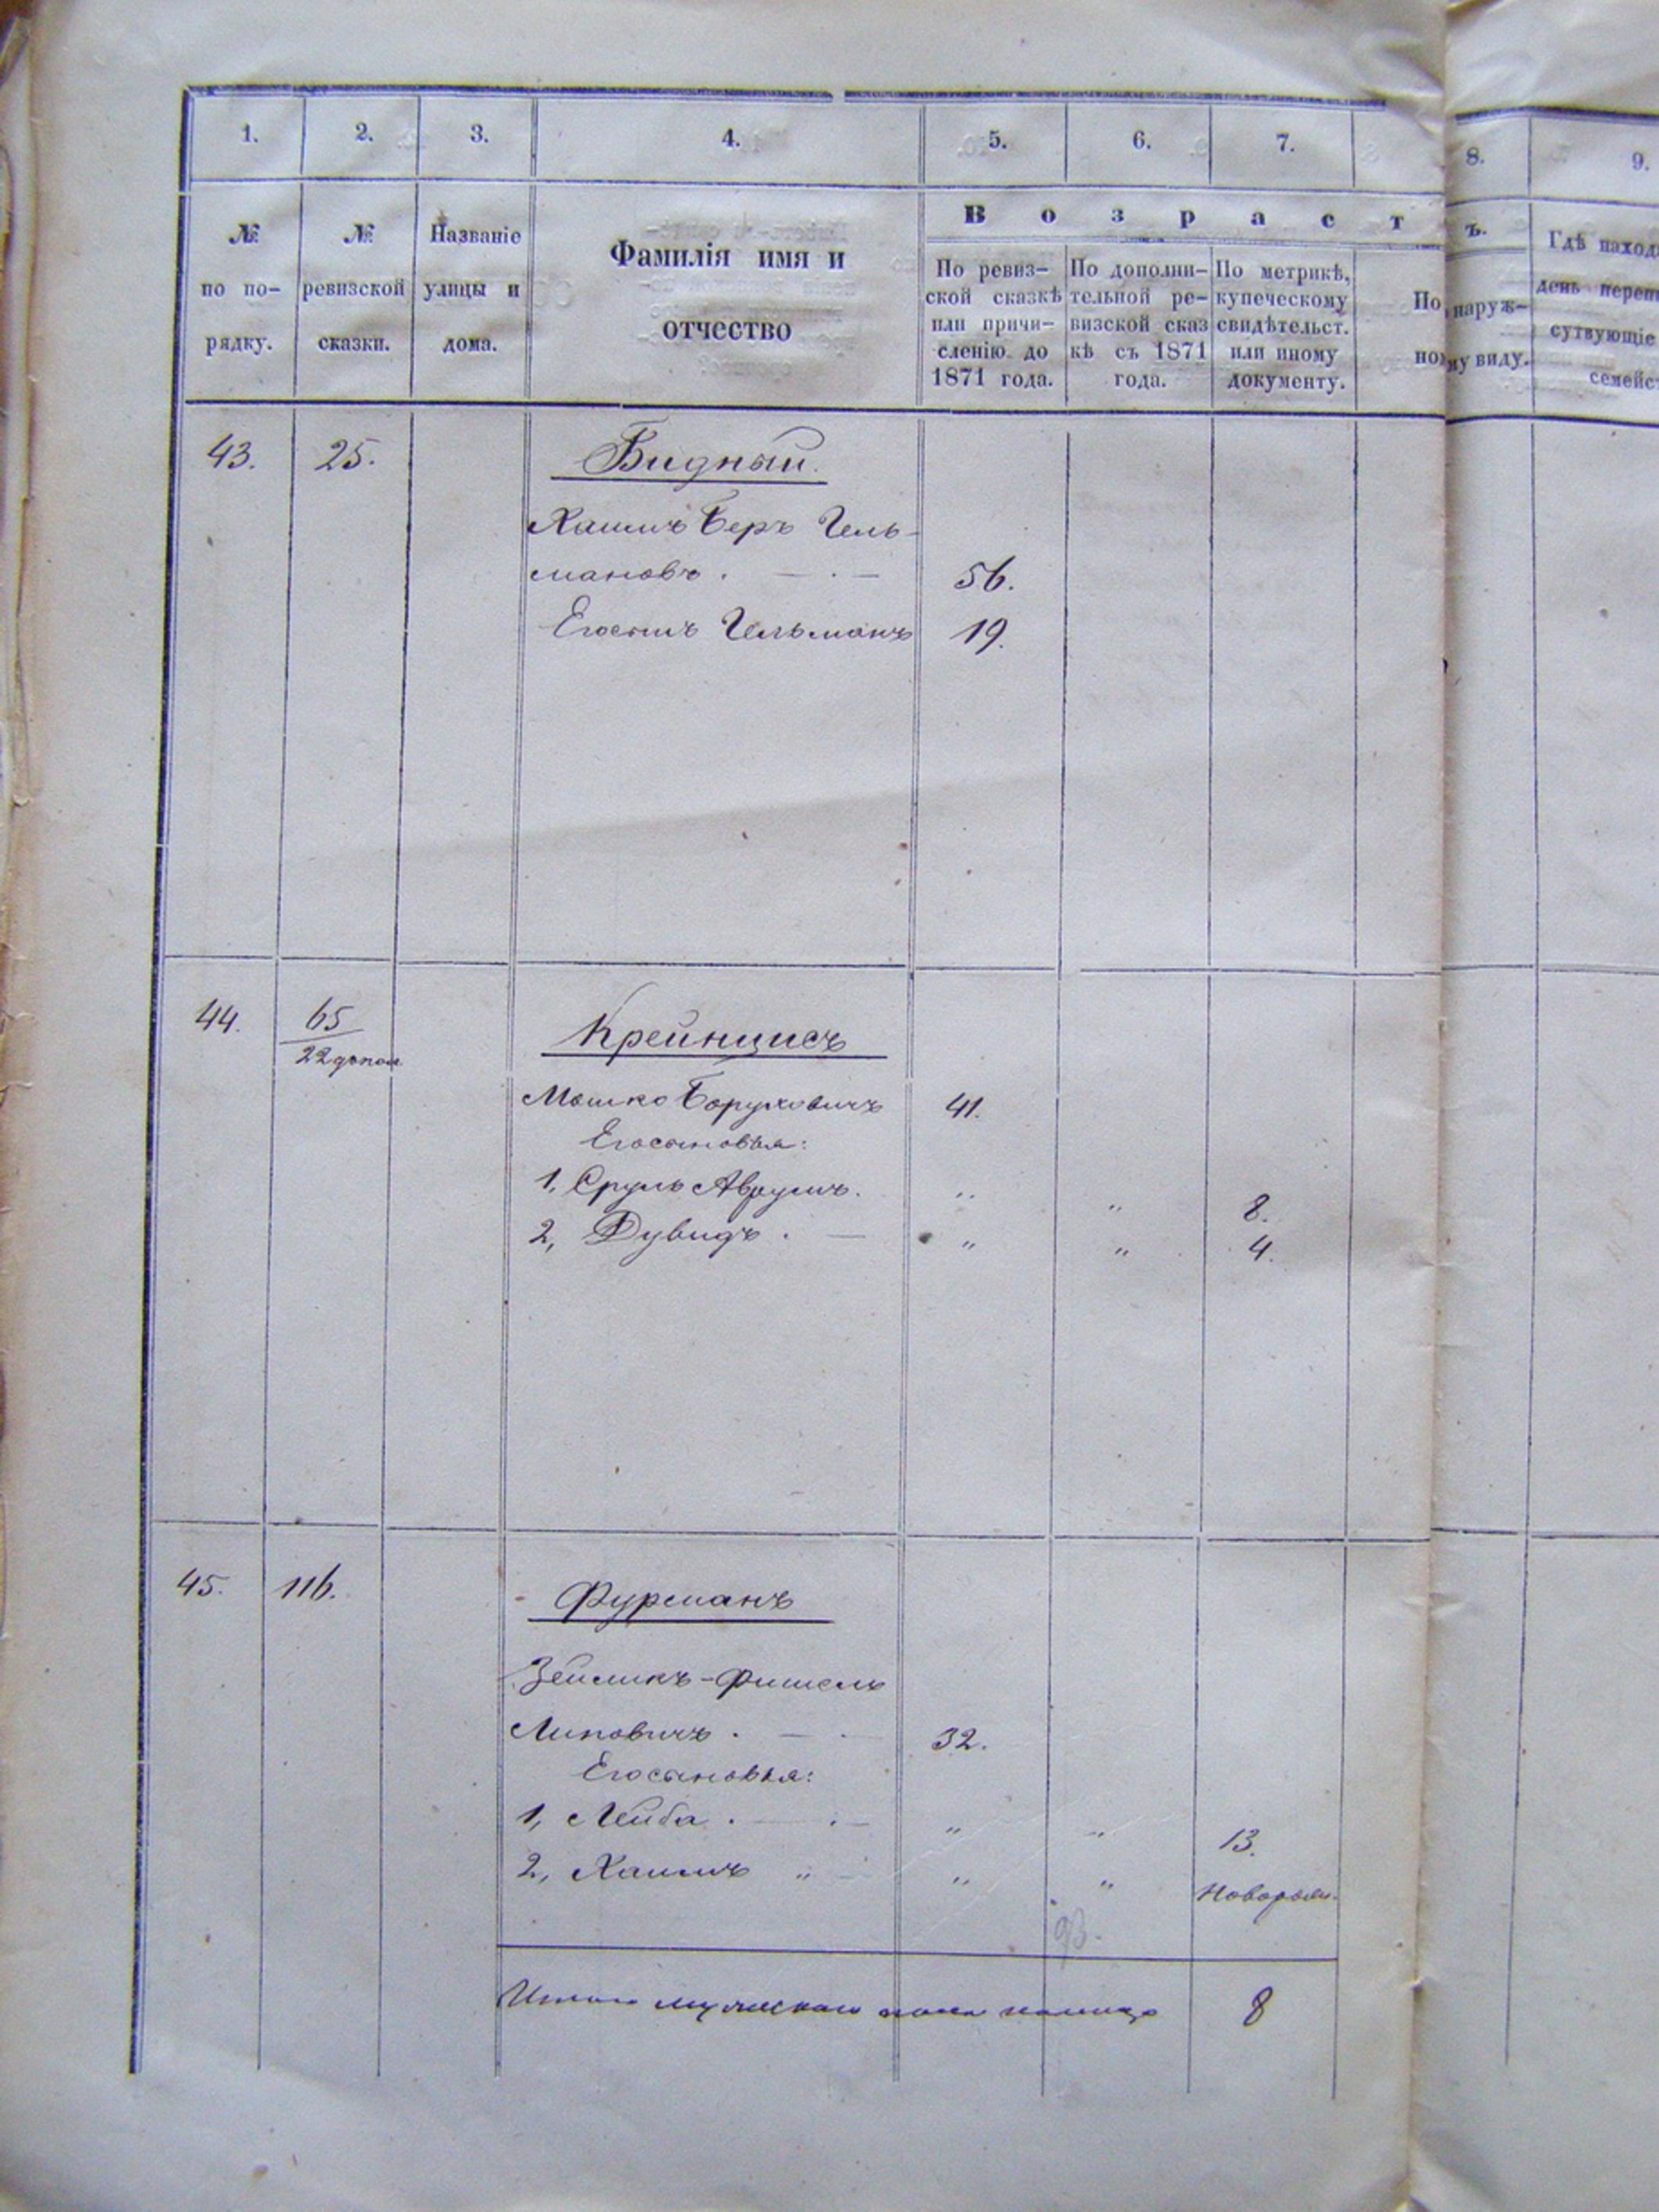 1. 2. 3. 4. 5. 6. 7. 8. 9.
№ по по-рядку.
№ ревизской сказки.
Названіе улицы и дома.
Фамилія имя и
отчество
Возрастъ.
По ревиз-
ской сказкѣ
или причи-
сленію до
1871 года.
По дополни-
тельной ре-
визской сказ
кѣ съ 1871
года.
По метрикѣ,
купеческому
свидѣтельст.
или иному
документу.
По наруж-
ному виду.
Гдѣ наход
день переп
сутвующіе
семейс
43. 25. Бидный.
Хаимъ Беръ Гель-
мановъ. 56.
Его сынъ Гельманъ 19.
44. 65 Крейнцисъ
22 допол
Мошко Боруховичъ 41.
Его сыновья:
1, Сруль Аврумъ. " " 8.
2, Дувидъ. " " 4.
45. 116. Фурманъ
Зейликъ-Фишель
Липовичъ. 32.
Его сыновья:
1, Лейба. " " 13.
2, Хаимъ " " " Новорож.
93.
Итого мужескаго пола налицо 8